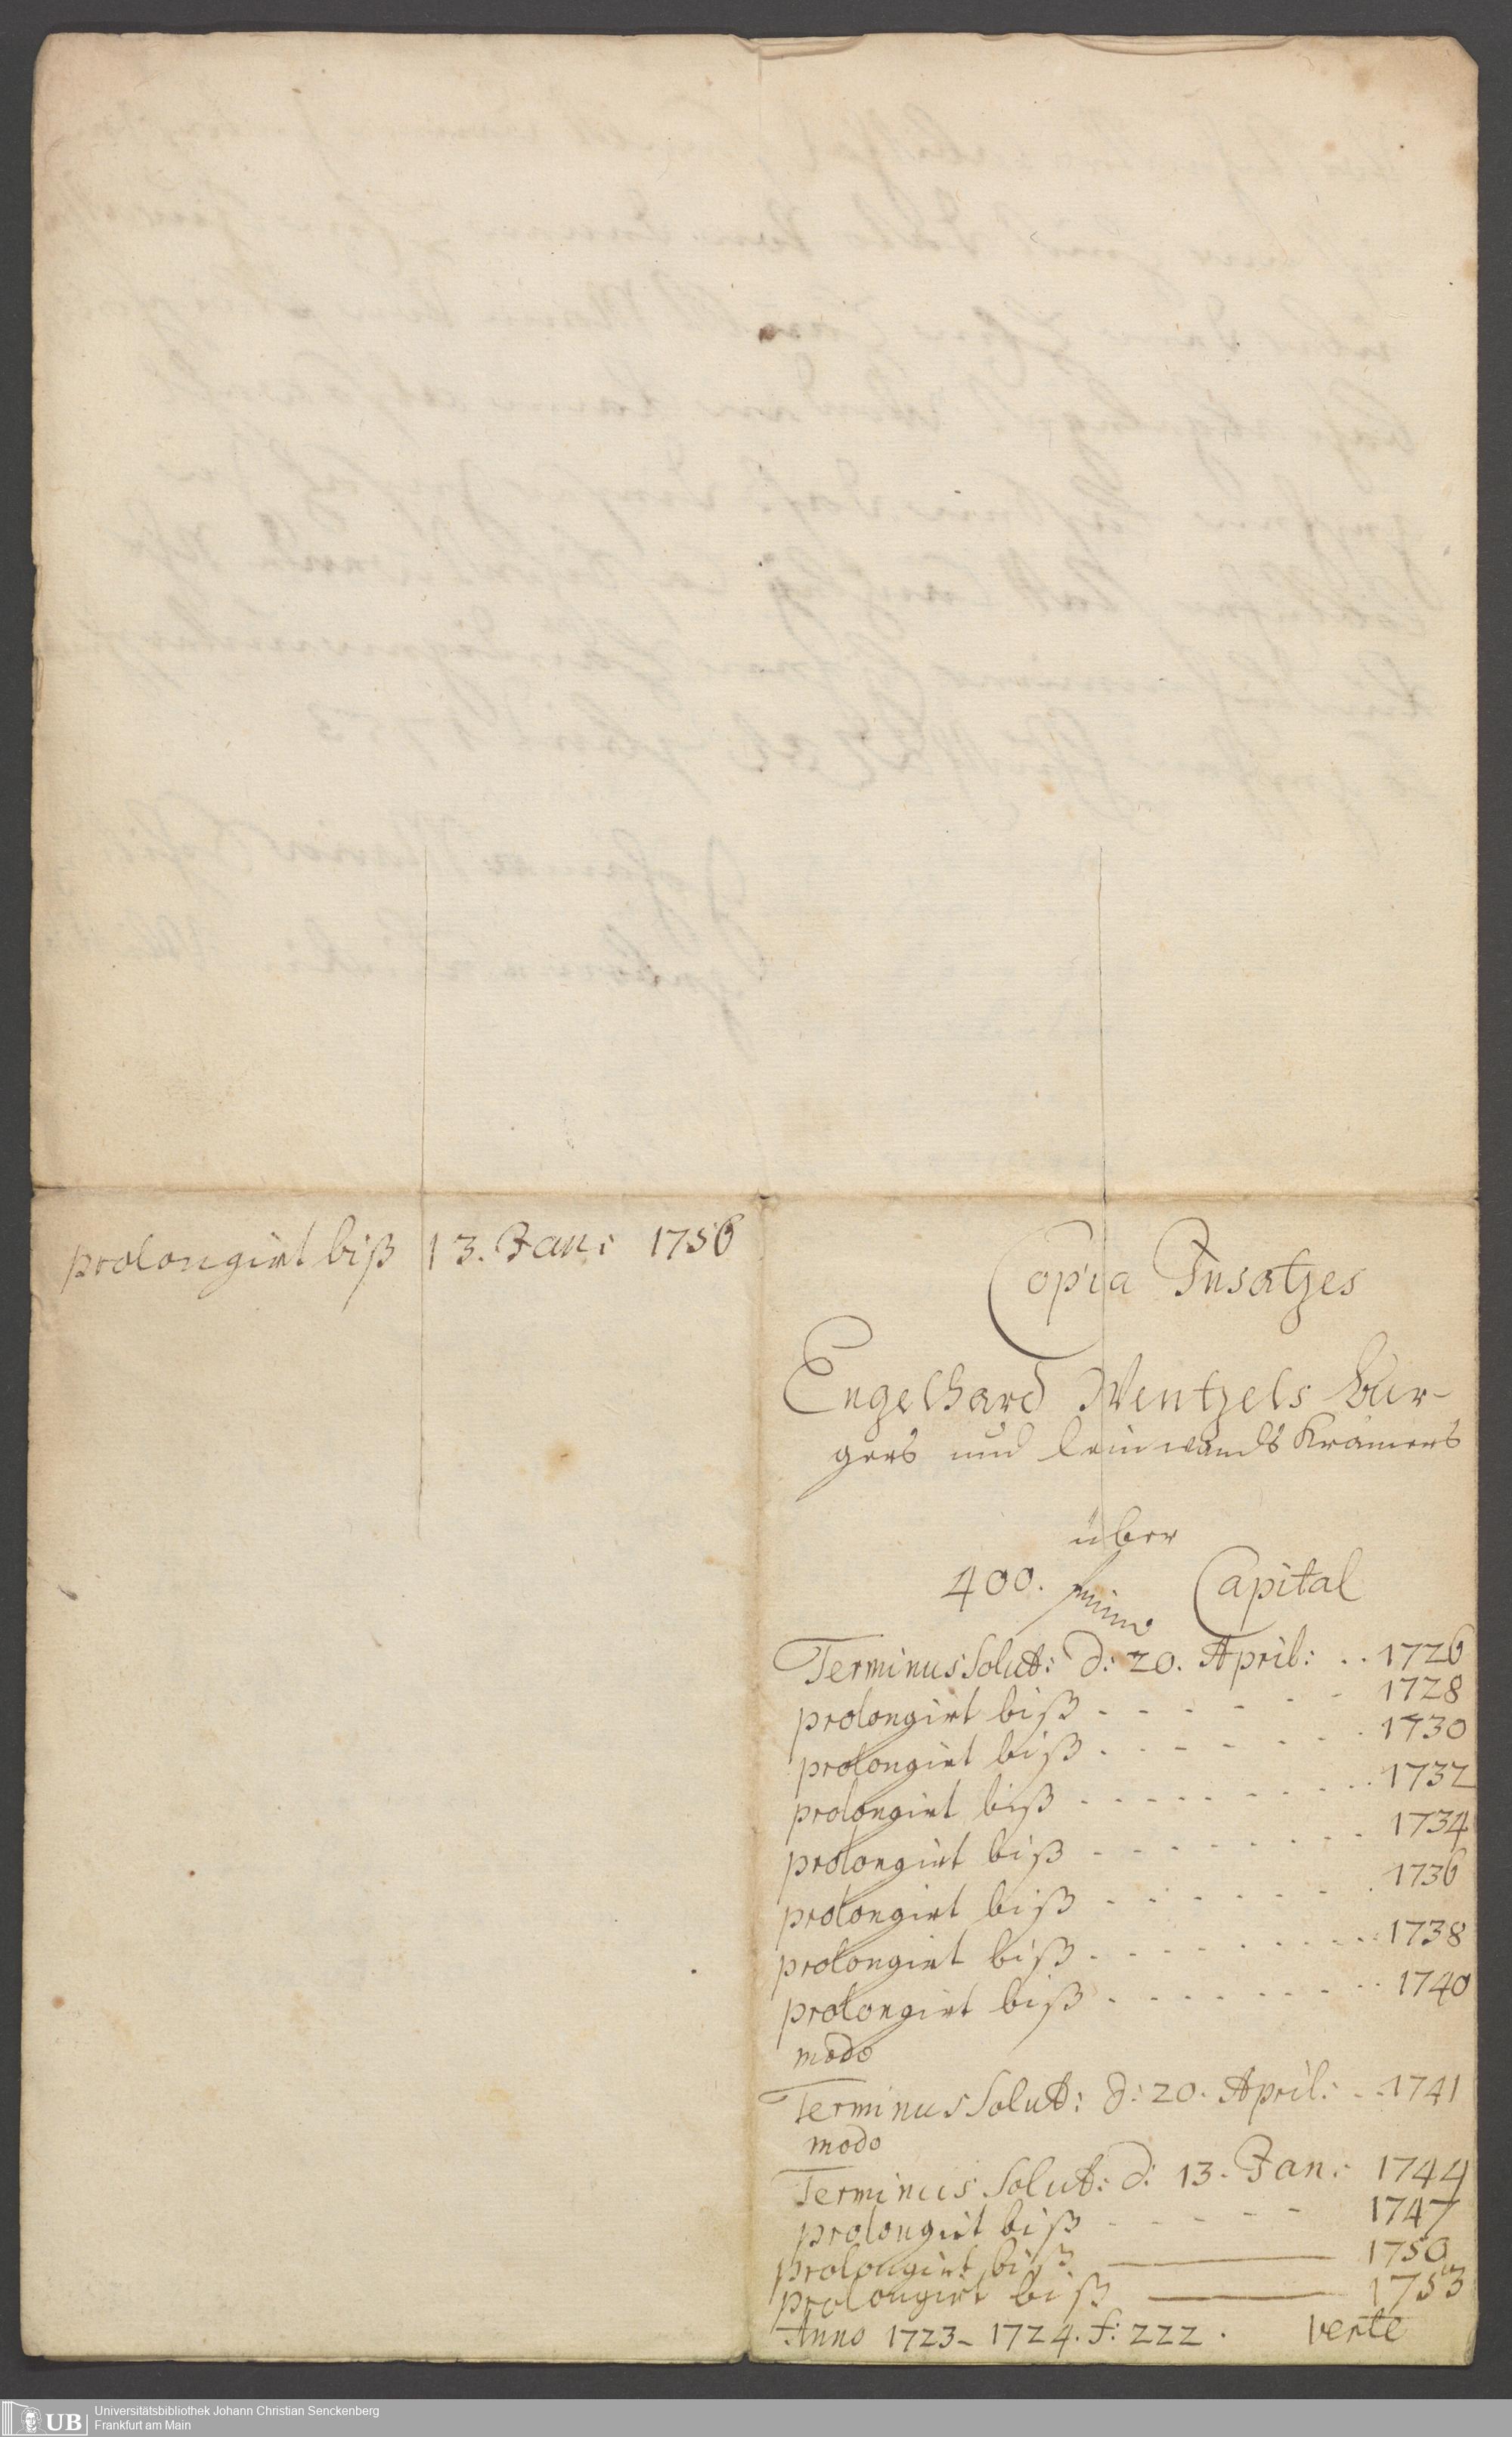 prolongirt biß 13. Jan: 1756
Copia Insatzes
Engelhard Wentzels Bur-
gers und Leinwands Krämers
über
400. Capital
Terminus Solut: d: 20. April: .. 1726
prolongirt biß - - - - - - 1728
prolongirt biß - - - - - - 1730
prolongirt biß - - - - - - 1732
prolongirt biß - - - - - - 1734
prolongirt biß - - - - - - 1736
prolongirt biß - - - - - - 1738
prolongirt biß - - - - - - 1740
modo
Terminus Solut: d: 20. April: .. 1741
modo
Terminus Solut: d: 13. Jan: 1744
prolongirt biß - - - - - 1747
prolongirt biß — 1750
prolongirt biß — 1753
Anno 1723 - 1724. f: 222. verte
UB
Universitätsbibliothek Johann Christian Senckenberg
Frankfurt am Main